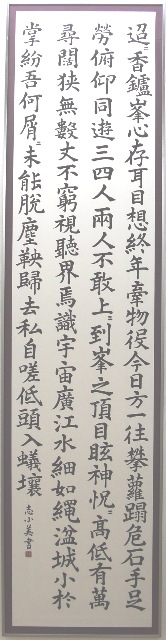 迢〻香鑪峯心存耳目想終年牽物役今日方一往攀蘿蹋危石手足
勞俯仰同遊三四人兩人不敢上〻到峯之頂目眩神怳〻高低有萬
尋闊狹無數丈不窮視聽界焉識宇宙廣江水細如繩湓城小於
掌紛吾何屑〻未能脫塵鞅歸去私自嗟低頭入蟻壤
志小美書